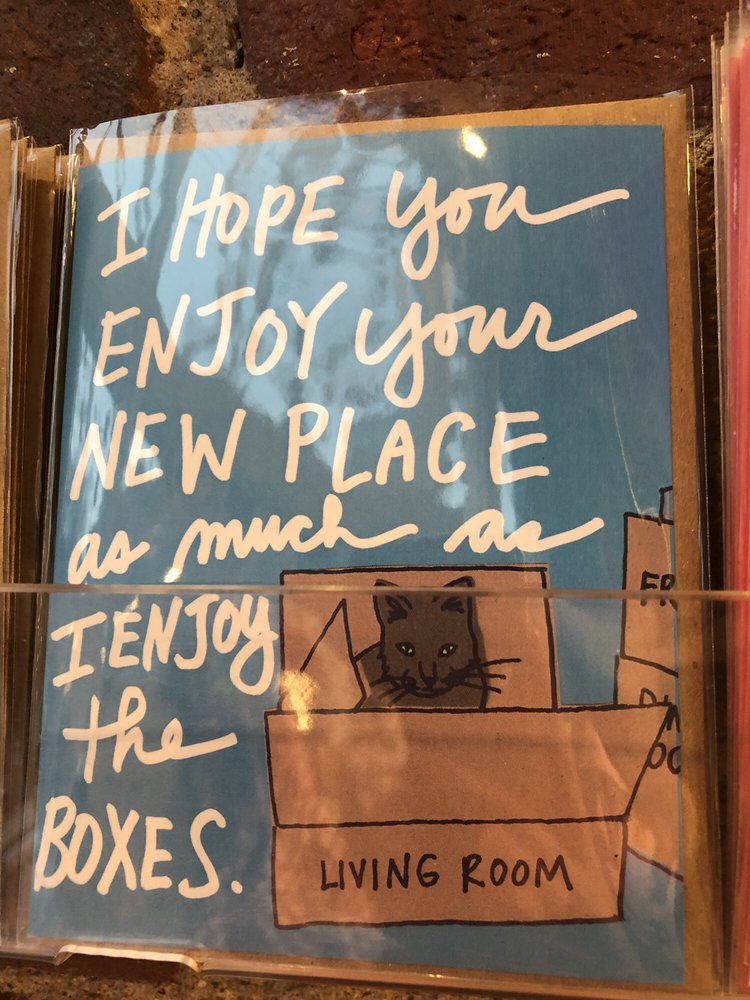 I HOPE you
ENJOY your
NEW PLACE
as much as
I ENJOY
the
BOXES.
LIVING ROOM